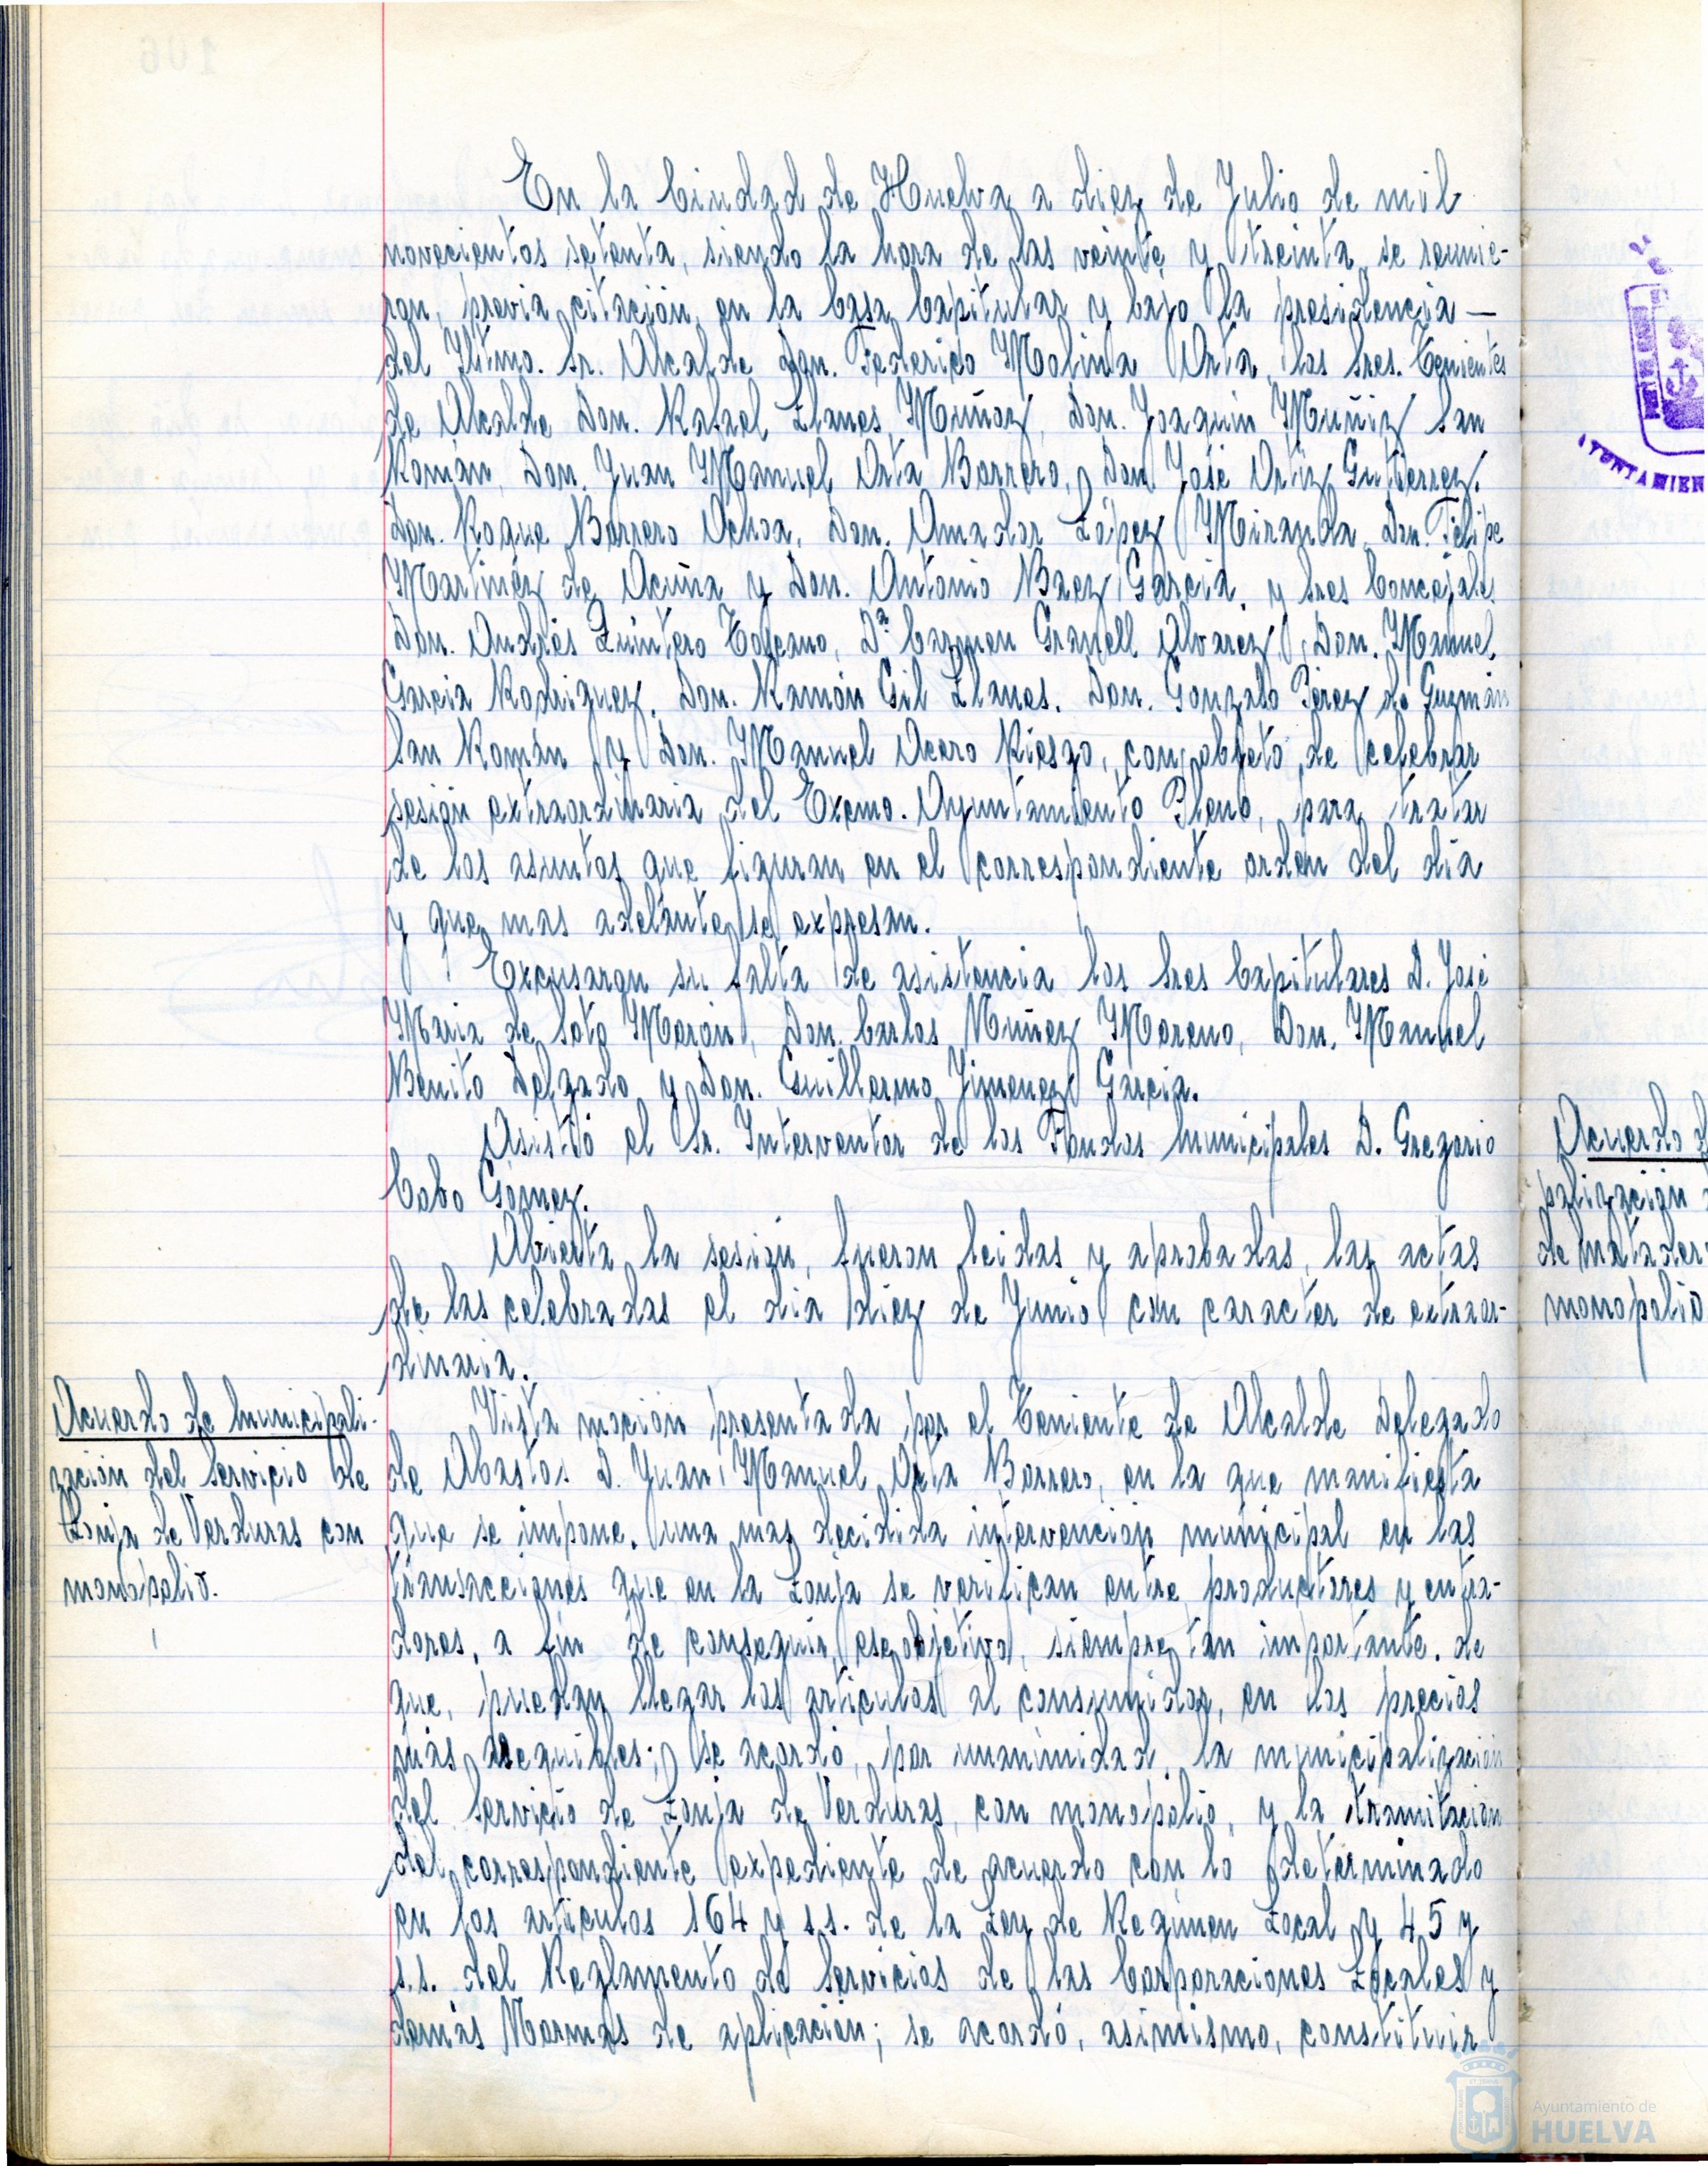 En la Ciudad de Huelva a diez de Julio de mil
novecientos setenta, siendo la hora de las veinte y treinta, se reunie-
ron, previa citación, en la Casa Capitular y bajo la presidencia —
del Iltmo. Sr. Alcalde Don. Federico Molina Orta, los Sres. Tenientes
de Alcalde Don. Rafael Llanes Muñoz, Don. Joaquin Muñiz San
Román, Don. Juan Manuel Orta Borrero, Don José Ortiz Gutierrez.
Don. Roque Barrero Ochoa, Don. Amador López Miranda, Don. Felipe
Martinez de Acuña y Don. Antonio Baez Garcia. y Sres Concejales
Don. Andrés Quintero Toscano, Dª Carmen Granell Alvarez, Don. Manuel
Garcia Rodriguez, Don. Ramón Gil Llanes. Don. Gonzalo Pérez de Guzmán
San Román y Don. Manuel Acero Riesgo, con objeto de celebrar
sesión extraordinaria del Excmo. Ayuntamiento Pleno, para tratar
de los asuntos que figuran en el correspondiente orden del dia
y que mas adelante se expresan.
Excusaron su falta de asistencia los Sres Capitulares D. José
Maria de Soto Morón, Don. Carlos Nuñez Moreno, Don. Manuel
Benito Delgado y Don. Guillermo Jimenez Garcia.
Asistió el Sr. Interventor de los Fondos Municipales D. Gregorio
Cobo Gomez.
Abierta la sesión, fueron leidas y aprobadas, las actas
de las celebradas el dia diez de Junio con caracter de extraor-
dinaria.
Acuerdo de Municipali-
zación del Servicio de
Lonja de Verduras con
monopolio.
Vista moción presentada por el Teniente de Alcalde Delegado
de Abastos D. Juan Manuel Orta Borrero, en la que manifiesta
que se impone, una mas decidida intervención municipal en las
transacciones que en la Lonja se verifican entre productores y entra-
dores, a fin de conseguir, ese objetivo, siempre tan importante. de
que, puedan llegar los articulos al consumidor, en los precios
más asequibles; se acordó, por unanimidad, la municipalización
del Servicio de Lonja de Verduras, con monopolio, y la tramitación
del correspondiente expediente de acuerdo con lo determinado
en los articulos 164 y s.s. de la Ley de Regimen Local y 45 y
s.s. del Reglamento de Servicios de las Corporaciones Locales y
demás Normas de aplicación; se acordó, asimismo, constituir
Acuerdo
palización
de matader
monopolio
Ayuntamiento de
HUELVA